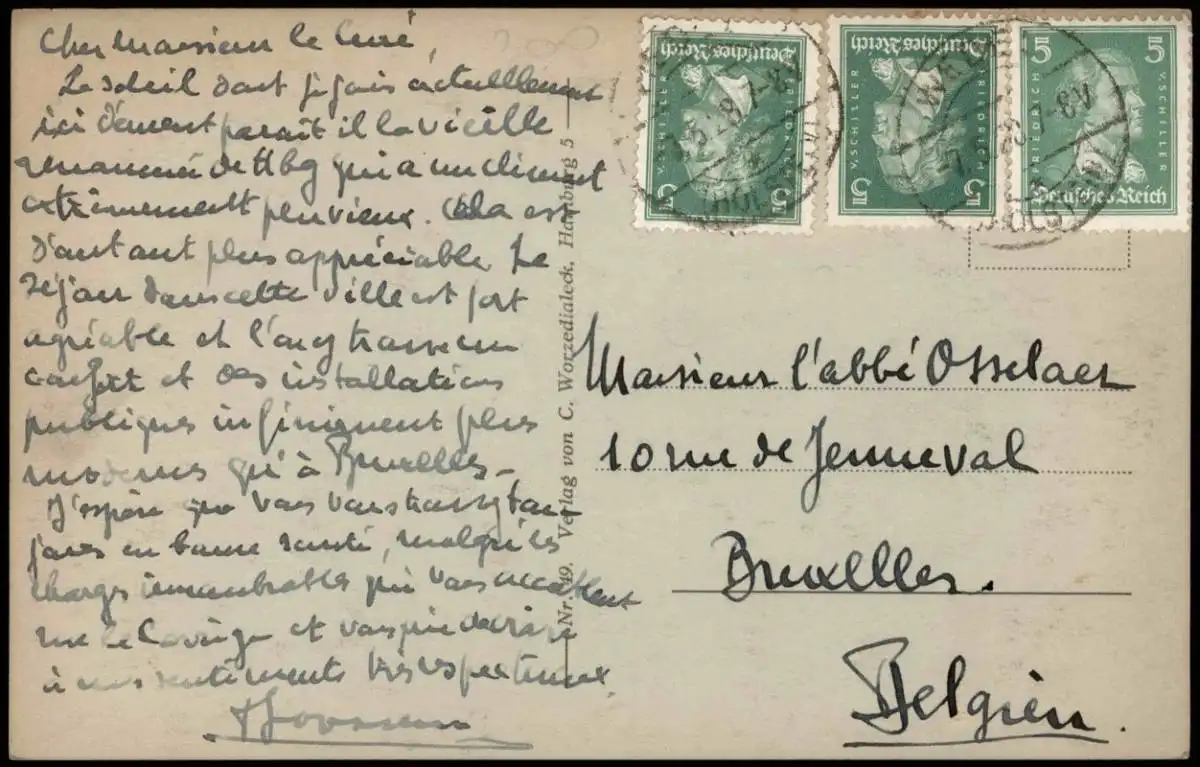 Cher Monsieur le Curé,
Le soleil dont je jouis actuellement
ici dément paraît il la vieille
renommée de Hbg qui a un climat
extrêmement pluvieux. Cela est
d'autant plus appréciable. Le
séjour dans cette ville est fort
agréable et l'on y trouve un
confort et des installations
publiques infiniment plus
modernes qu'à Bruxelles –
J'espère que vous vous trouvez tou-
jours en bonne santé, malgré les
charges innombrables qui vous accablent
et vous prie de croire
à mes sentiments très respectueux.
Nr. 49. Verlag von C. Worzedialeck, Hamburg 5
Deutsches Reich
5 5
FRIEDRICH V. SCHILLER
Deutsches Reich
5 5
FRIEDRICH V. SCHILLER
5 5
FRIEDRICH V. SCHILLER
Deutsches Reich
(HOLST)
7-8V
Monsieur l'abbé Osselaer
10 rue de Jenneval
Bruxelles.
Belgien.